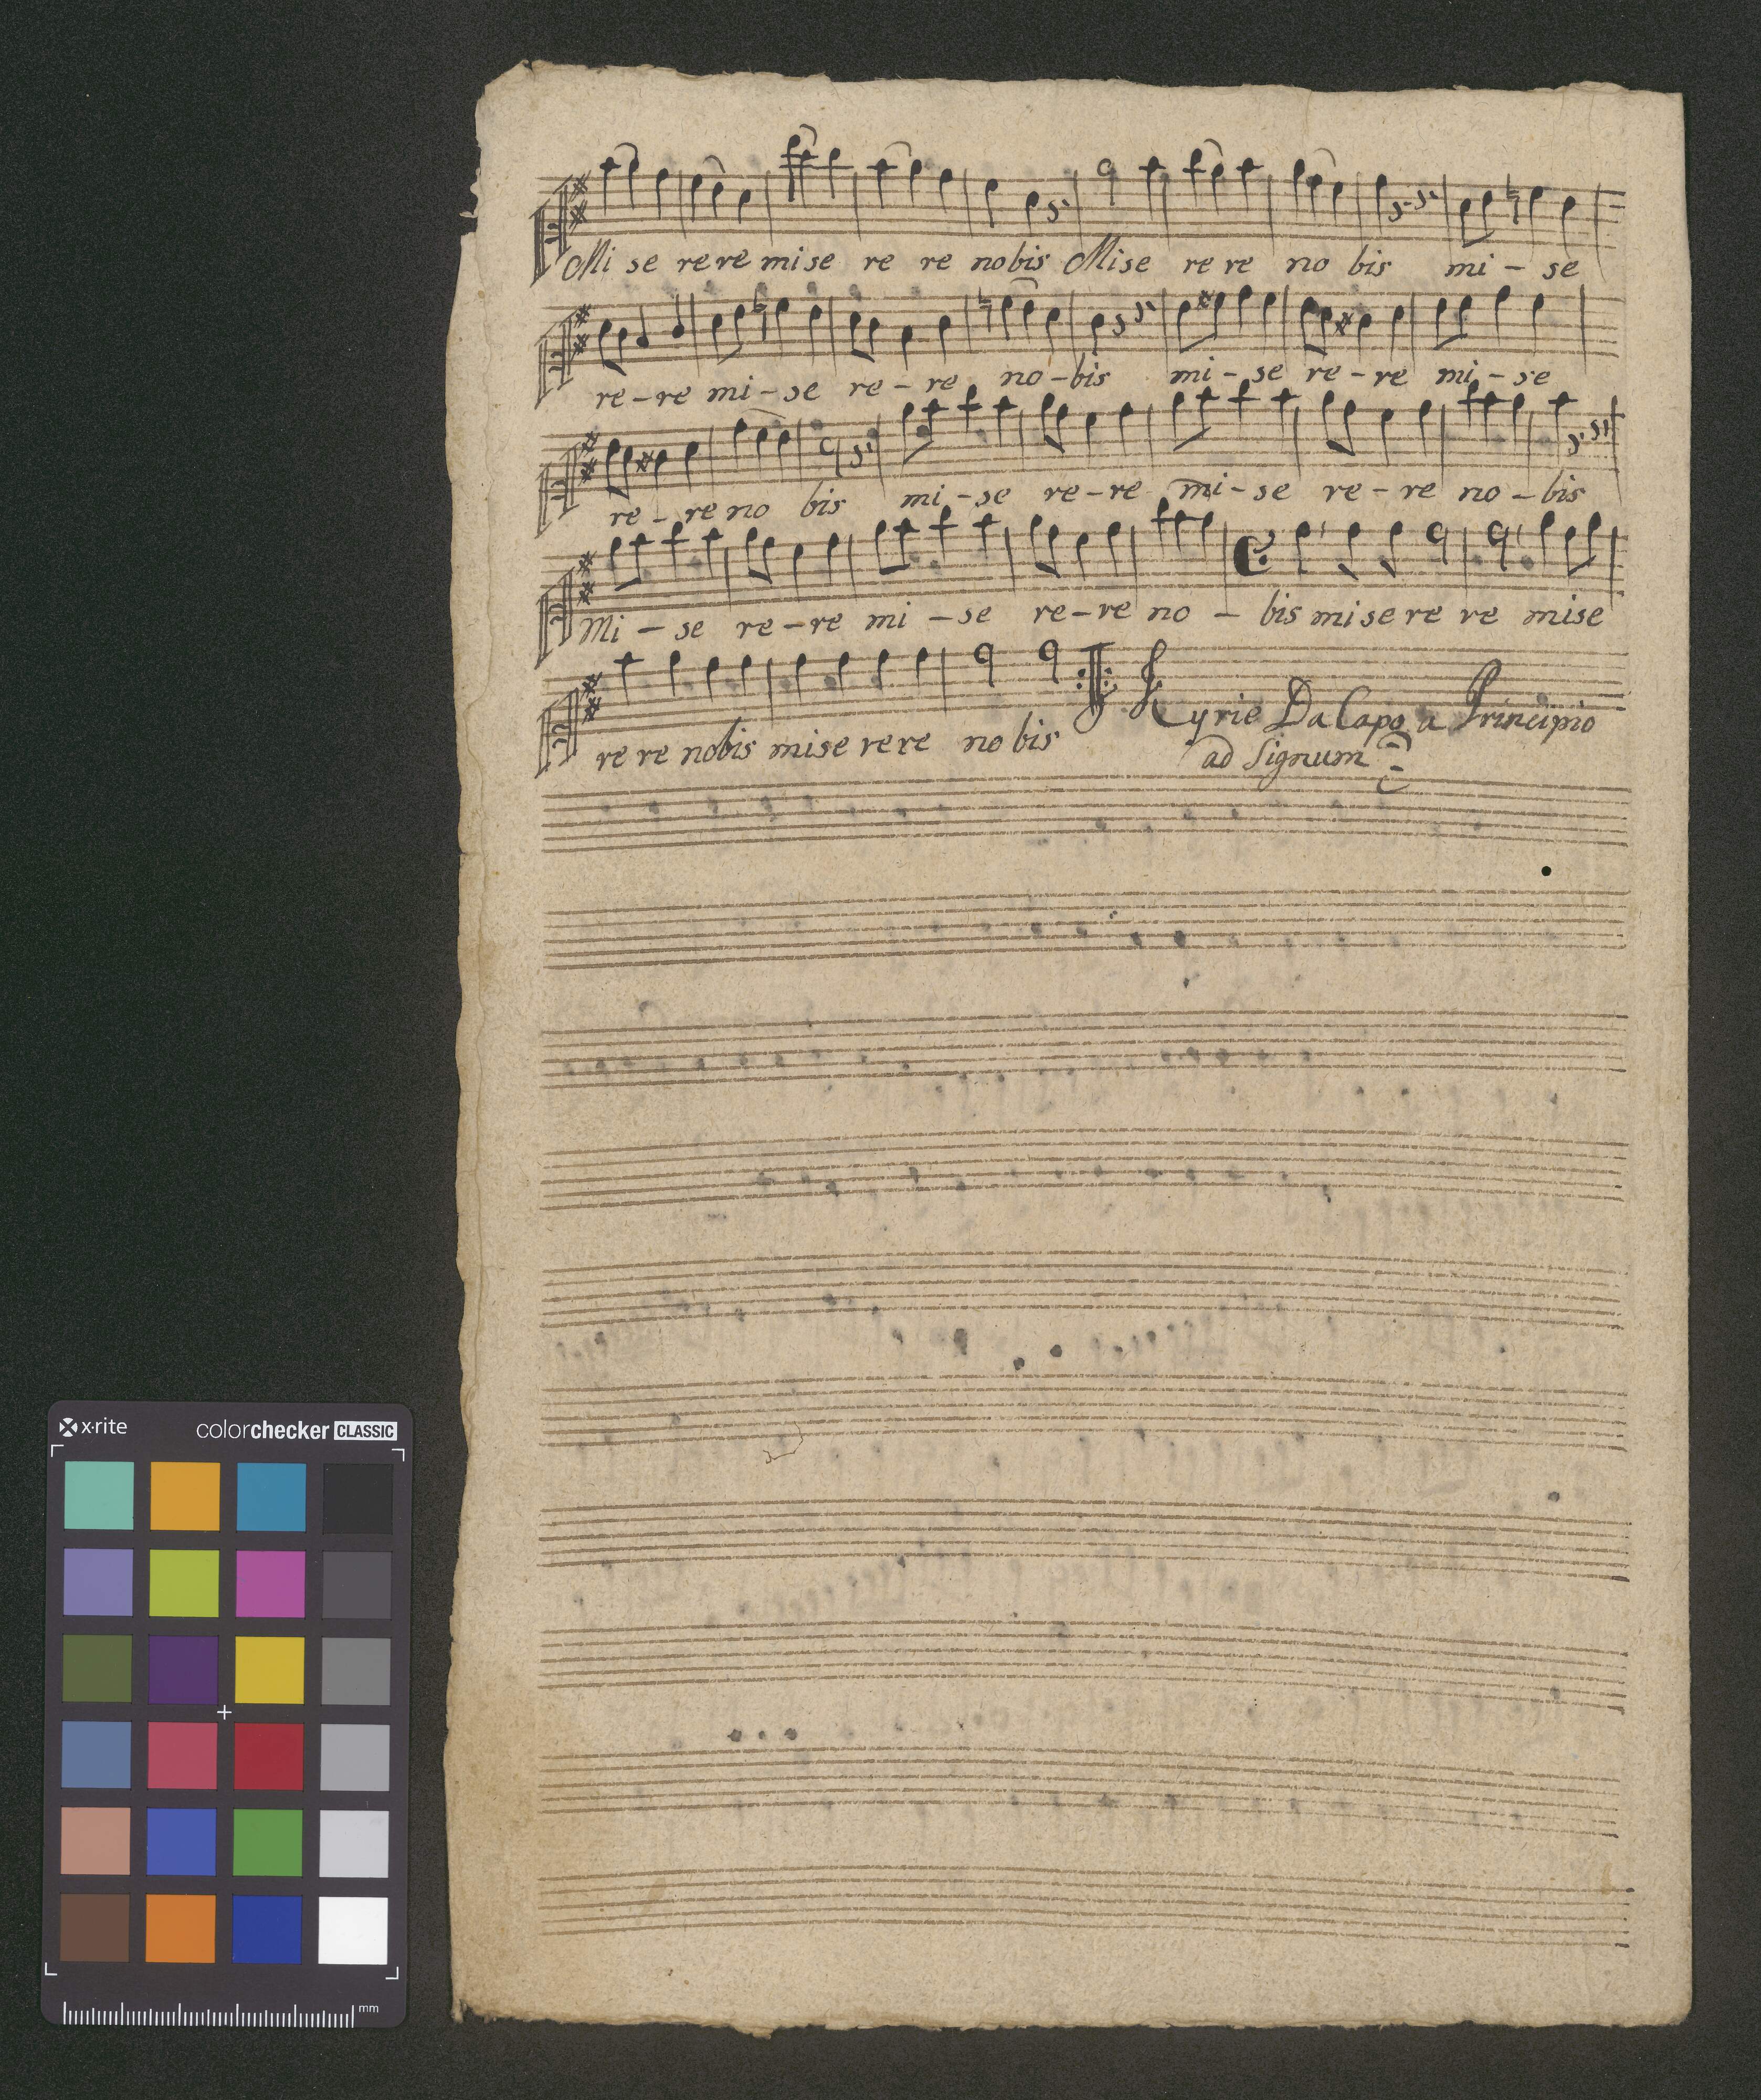 Mi se re re mi se re re no bis Mise re re no bis mi - se
re - re mi - se re - re no - bis mi - se re - re mi - se
re - re no bis mi - se re - re mi - se re - re no - bis
Mi - se re - re mi - se re - re no - bis mi se re re mise
re re nobis mise re re no bis Kyrie Da Capo a Principio
ad Signum
x·rite colorchecker CLASSIC
mm